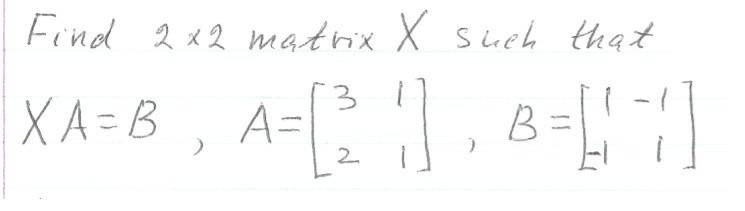 Find 2x2 matrix X such that
XA=B , A=[3 1
2 1] , B=[1 -1
-1 1]